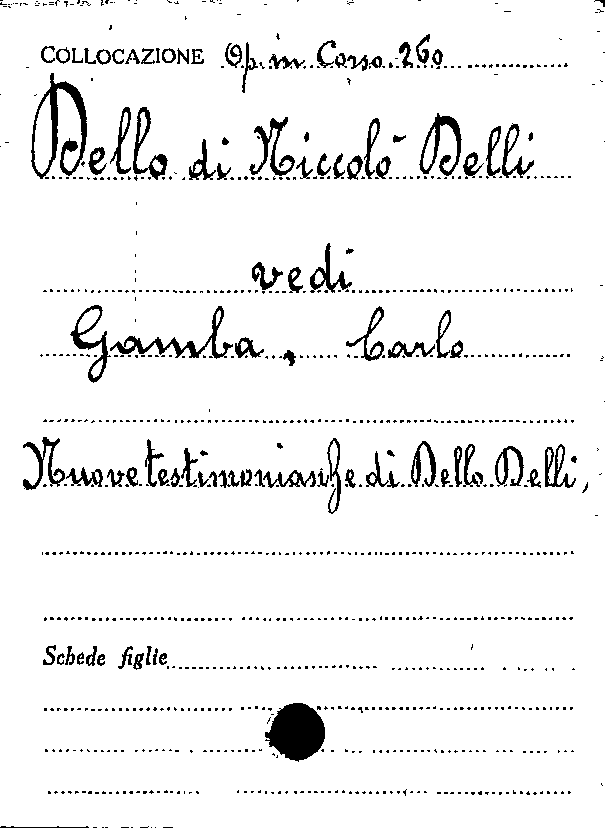 COLLOCAZIONE Op. in Corso. 260
Dello di Niccolò Delli
vedi
Gamba, Carlo
Nuove testimonianze di Dello Delli,
Schede figlie